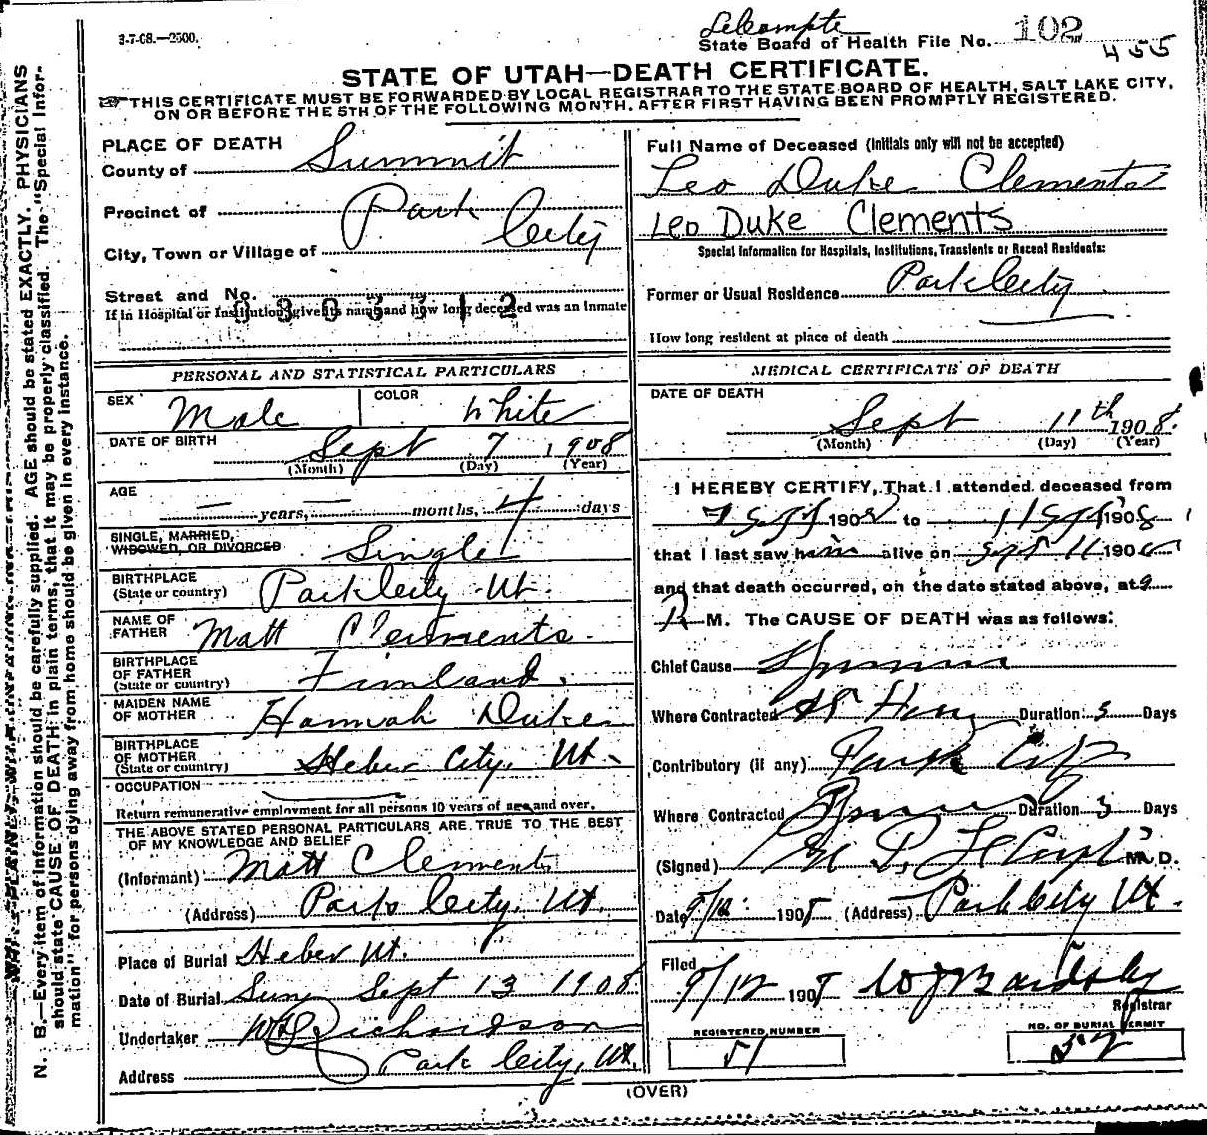 3-7-08.—2500.
Lecompte
State Board of Health File No. 102
455
STATE OF UTAH—DEATH CERTIFICATE.
THIS CERTIFICATE MUST BE FORWARDED BY LOCAL REGISTRAR TO THE STATE BOARD OF HEALTH, SALT LAKE CITY,
ON OR BEFORE THE 5TH OF THE FOLLOWING MONTH, AFTER FIRST HAVING BEEN PROMPTLY REGISTERED.
N. B.—Every item of information should be carefully supplied. AGE should be stated EXACTLY. PHYSICIANS
should state CAUSE OF DEATH in plain terms, that it may be properly classified. The "Special Infor-
mation" for persons dying away from home should be given in every instance.
PLACE OF DEATH
County of Summit
Precinct of Park City
City, Town or Village of
Street and No.
If in Hospital or Institution, give its name and how long deceased was an inmate
PERSONAL AND STATISTICAL PARTICULARS
SEX Male COLOR White
DATE OF BIRTH Sept 7 1908
(Month) (Day) (Year)
AGE — years, — months, 4 days
SINGLE, MARRIED,
WIDOWED, OR DIVORCED Single
BIRTHPLACE
(State or country) Park City Ut.
NAME OF
FATHER Matt Clements.
BIRTHPLACE
OF FATHER
(State or country) Finland.
MAIDEN NAME
OF MOTHER Hannah Duke
BIRTHPLACE
OF MOTHER
(State or country) Heber City, Ut.
OCCUPATION
Return remunerative employment for all persons 10 years of age and over.
THE ABOVE STATED PERSONAL PARTICULARS ARE TRUE TO THE BEST
OF MY KNOWLEDGE AND BELIEF
(Informant) Matt Clements
(Address) Park City, Ut.
Place of Burial Heber Ut.
Date of Burial Sun Sept 13 1908
Undertaker Richardson
Address Park City, Ut.
Full Name of Deceased (Initials only will not be accepted)
Leo Duke Clements
Leo Duke Clements
Special Information for Hospitals, Institutions, Transients or Recent Residents:
Former or Usual Residence Park City
How long resident at place of death
MEDICAL CERTIFICATE OF DEATH
DATE OF DEATH
Sept 11th 1908.
(Month) (Day) (Year)
I HEREBY CERTIFY, That I attended deceased from
7 Sept 1908 to 11 Sept 1908
that I last saw him alive on Sept 11 190
and that death occurred, on the date stated above, at 9
P. M. The CAUSE OF DEATH was as follows:
Chief Cause
Where Contracted Duration 3 Days
Contributory (if any) Park City
Where Contracted Duration 3 Days
(Signed) M. D.
Date 9/12 1908 (Address) Park City Ut.
Filed 9/12 1908
Registrar
REGISTERED NUMBER
51
NO. OF BURIAL PERMIT
52
(OVER)